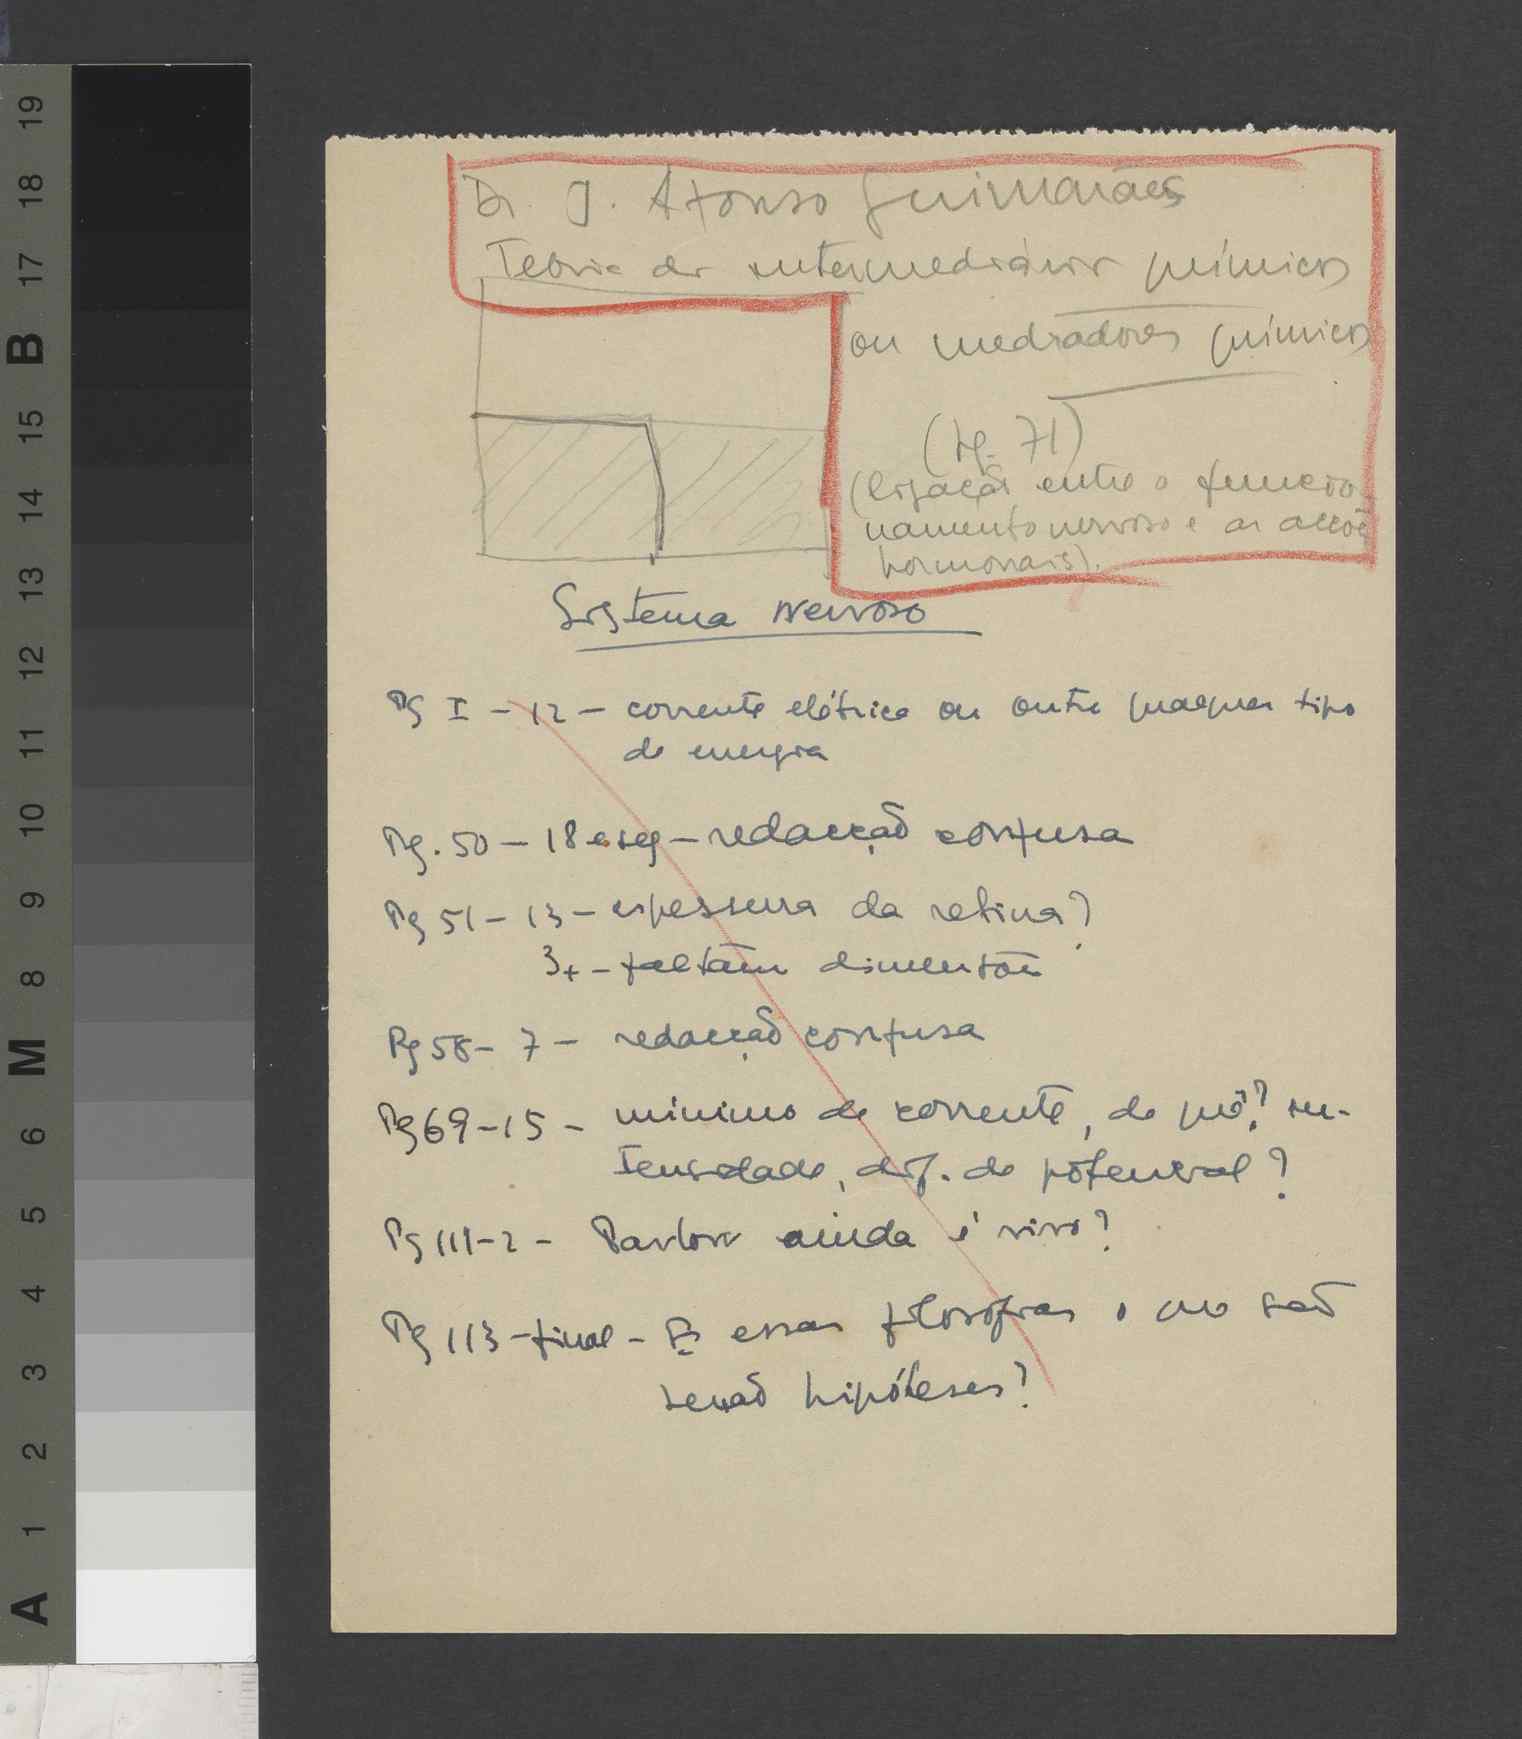 Dr. J. Afonso Guimarães
Teoria dos intermediários químicos
ou mediadores químicos
(Pg. 71)
(ligação entre o funcio-
namento nervoso e as acções
hormonais).
Sistema nervoso
Pg I - 12 - corrente elétrica ou outro qualquer tipo
de energia
Pg. 50 - 18 e seg - redacção confusa
Pg 51 - 13 - espessura da retina?
3+ - faltam dimensões
Pg 58 - 7 - redacção confusa
Pg 69 - 15 - mínimo de corrente, de quê? in-
tensidade, dif. de potencial?
Pg 111 - 2 - Pavlov ainda é vivo?
Pg 113 - final - E essas filosofias o que são
senão hipóteses?
19
18
17
B
15
14
13
12
11
10
9
8
M
6
5
4
3
2
1
A